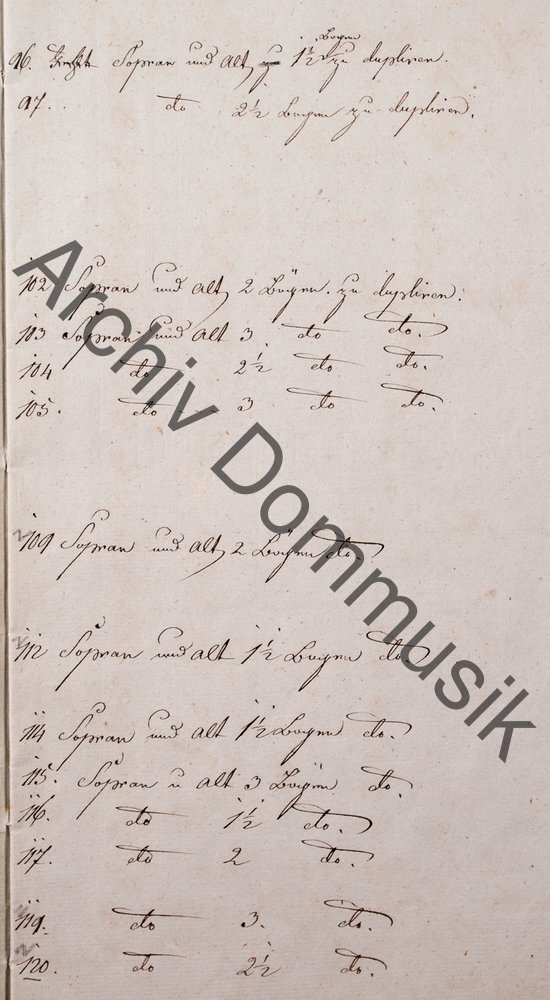 96. Sopran und Alt 1½ Bogen zu dupliren.
97. do 2½ Bogen zu dupliren.
102 Sopran und Alt 2 Bögen. zu dupliren.
103 Sopran und Alt 3. do do.
104 do 2½ do do.
105. do 3 do do.
109 Sopran und Alt 2 Bögen do.
112 Sopran und Alt 1½ Bogen do.
114 Sopran und Alt 1½ Bogen do.
115. Sopran u Alt 3 Bögen do.
116. do 1½ do.
117. do 2 do.
119. do 3. do.
120. do 2½ do.
Archiv Dommusik